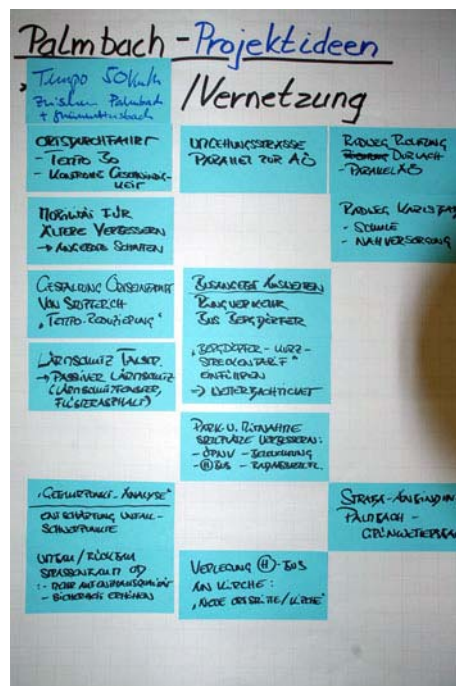 Palmbach - Projektideen
/Vernetzung
Tempo 50km/h
zwischen Palmbach
+ Grünwettersbach
ORTSDURCHFAHRT
- TEMPO 30
- KONTROLLE GESCHWINDIG-
KEIT
MOBILITÄT FÜR
ÄLTERE VERBESSERN
→ ANGEBOTE SCHAFFEN
GESTALTUNG ORTSEINFAHRT
VON STUPFERICH
"TEMPO-REDUZIERUNG"
LÄRMSCHUTZ TALSTR.
→ PASSIVER LÄRMSCHUTZ
(LÄRMSCHUTZFENSTER,
FLÜSTERASPHALT)
"GEFAHRPUNKT-ANALYSE"
ENTSCHÄRFUNG UNFALL-
SCHWERPUNKTE
UMBAU / RÜCKBAU
STRASSENRAUM OD
: - MEHR AUFENTHALTSQUALITÄT
- SICHERHEIT ERHÖHEN
UMGEHUNGSSTRASSE
PARALLEL ZUR A8
BUSANGEBOT AUSWEITEN
RINGVERKEHR
BUS BERGDÖRFER
"BERGDÖRFER-KURZ-
STRECKENTARIF"
EINFÜHREN
=> WETTERBACHTICKET
PARK-U. MITNAHME
STELLPLÄTZE VERBESSERN:
- ÖPNV - BELEUCHTUNG
- (H) BUS -
VERLEGUNG (H)-BUS
AN KIRCHE:
"NEUE ORTSMITTE/KIRCHE"
RADWEG RICHTUNG
DURLACH
- PARALLEL A8
RADWEG KARLSBAD
- SCHULE
- NAHVERSORGUNG
STRABA-ANBINDUN
PALMBACH -
GRÜNWETTERSBA